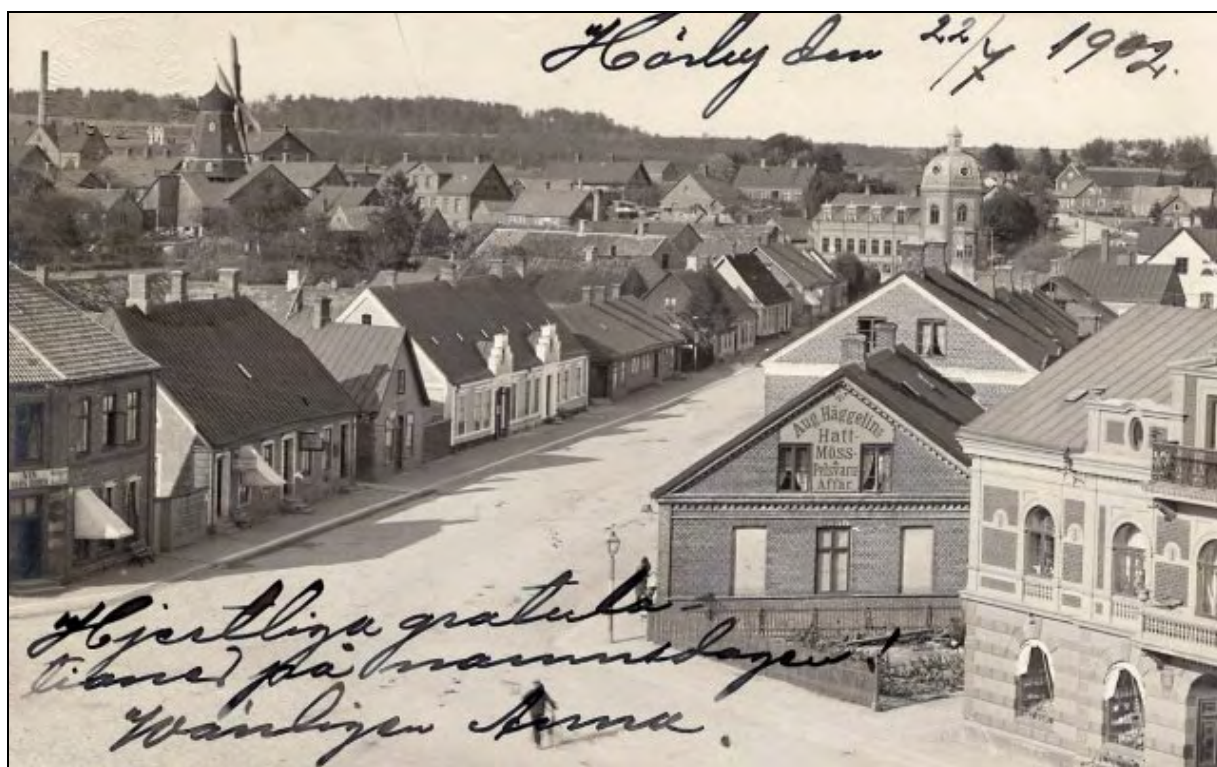 Hörby den 22/7 1902.
Aug. Häggelins
Hatt-
Möss-
&
Pelsvaru
Affär.
Hjertliga gratula-
tioner på namnsdagen!
Wänligen Anna